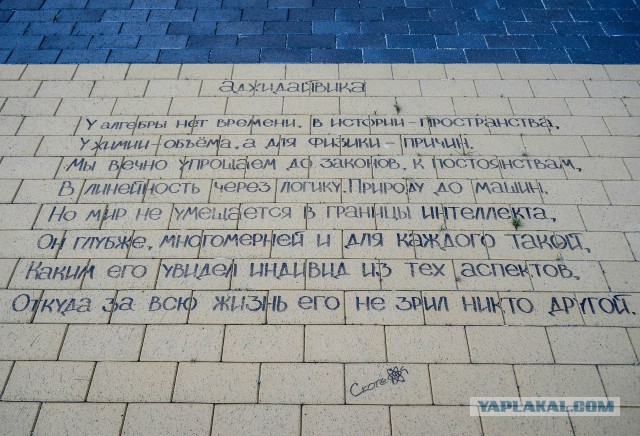 аджидайвика
У алгебры нет времени, в истории - пространства,
У химии - объёма, а для физики - причин.
Мы вечно упрощаем до законов, к постоянствам,
В линейность через логику. Природу до машин.
Но мир не умещается в границы интеллекта,
Он глубже, многомерней и для каждого такой,
Каким его увидел индивид из тех аспектов,
Откуда за всю жизнь его не зрил никто другой.
YAPLAKAL.COM